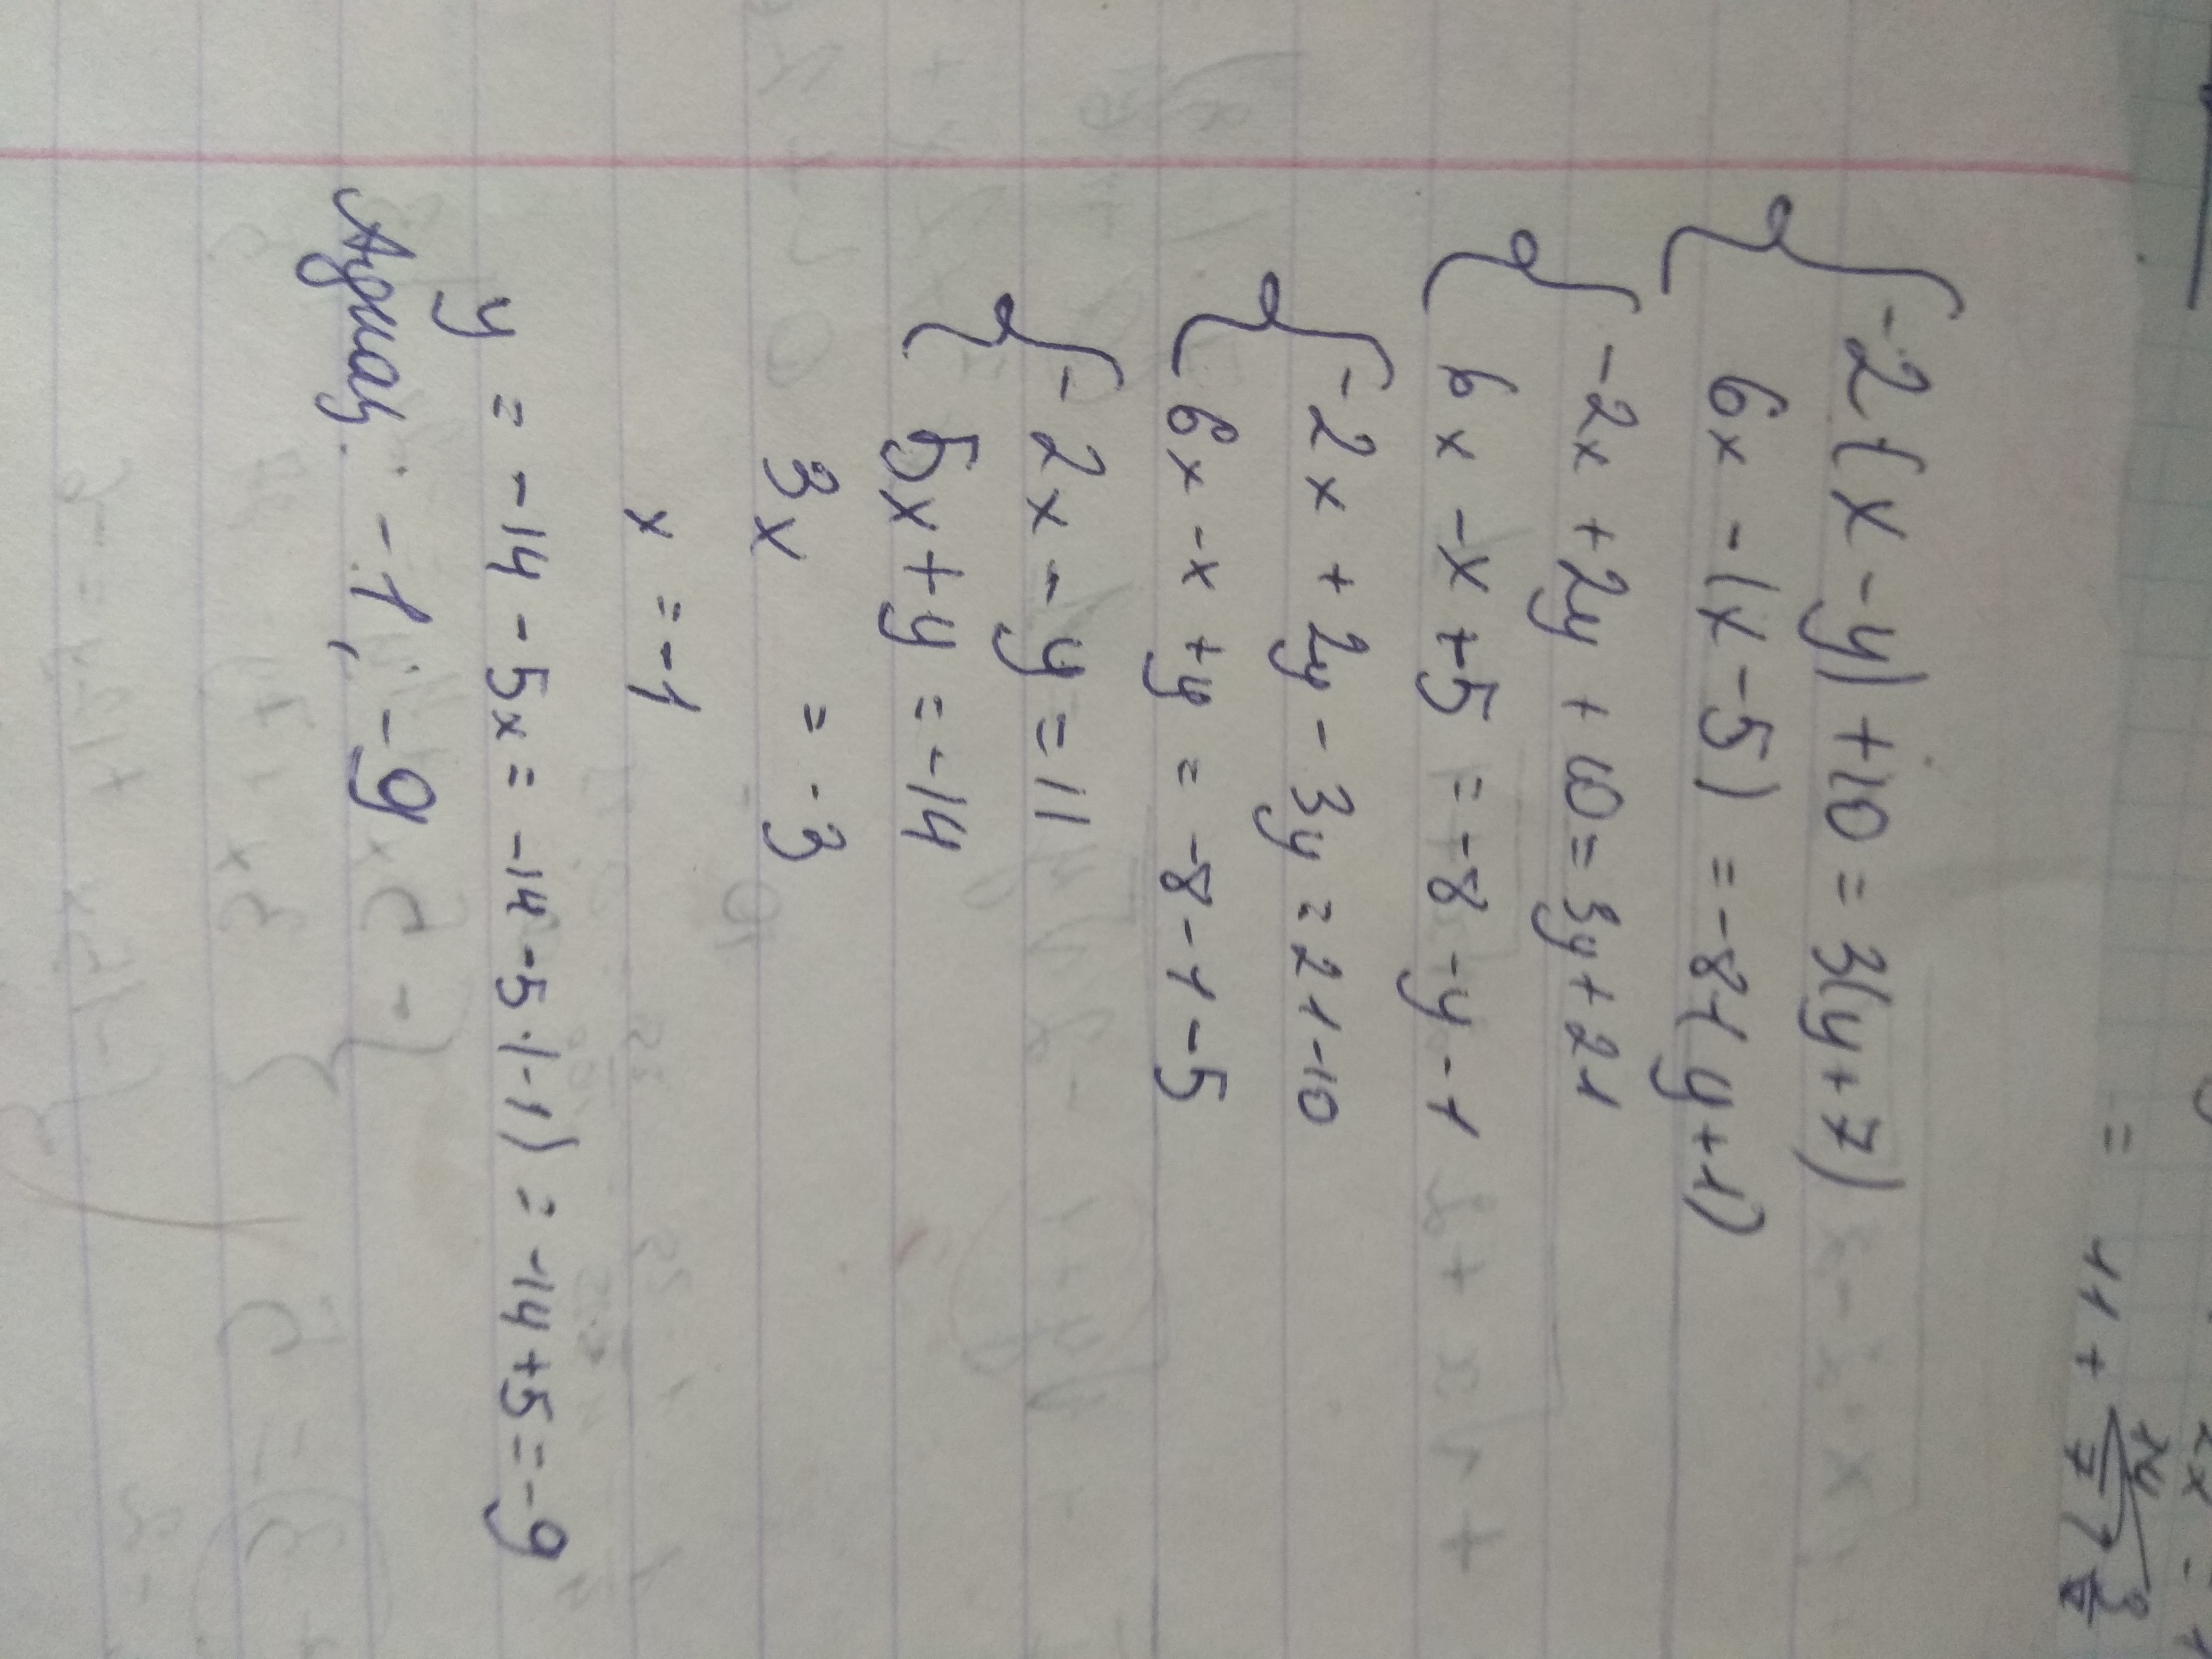 = 11 +
-2(x-y)+10=3(y+7)
6x-(x-5)=-8-(y+1)
-2x+2y+10=3y+21
6x-x+5=-8-y-1
-2x+2y-3y=21-10
6x-x+y=-8-1-5
-2x-y=11
5x+y=-14
3x = -3
x=-1
y=-14-5x=-14-5·(-1)=-14+5=-9
-1, -9